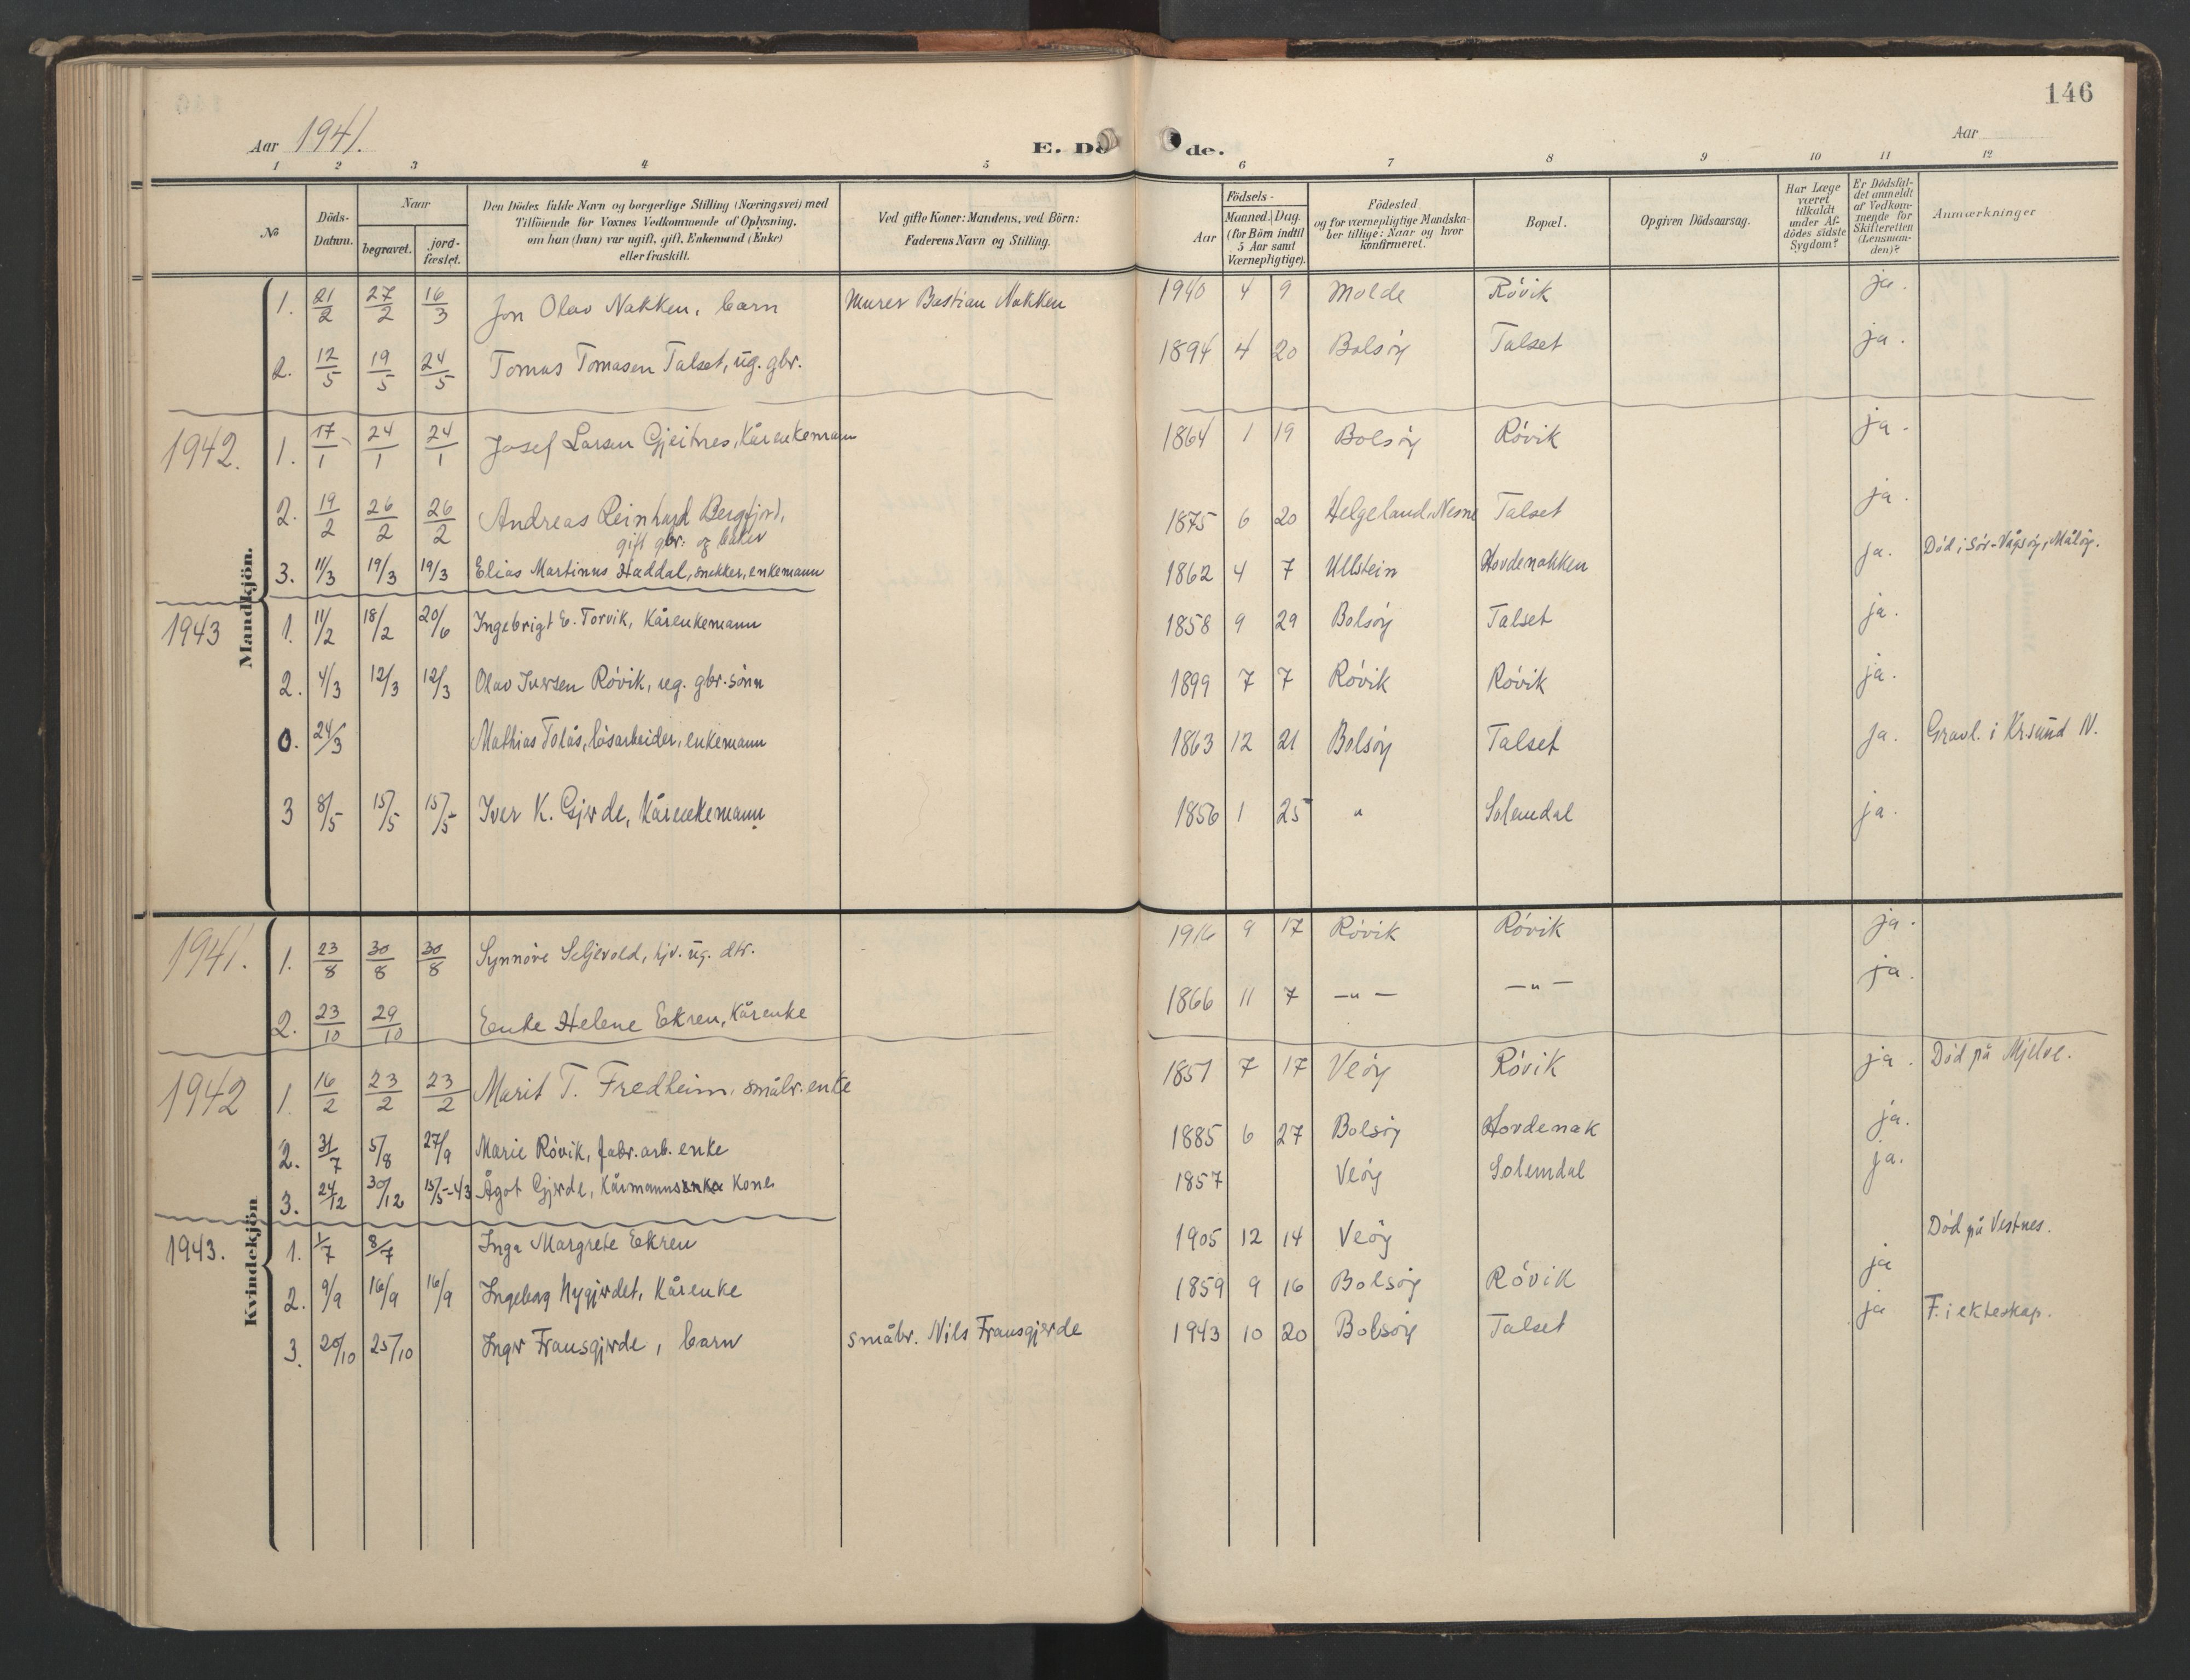 146
Aar 1941.
E. Dö
de.
Aar
1 2 3 4 5 6 7 8 9 10 11 12
No
Döds-
Datum.
Naar
begravet.
jord-
fæstet.
Den Dödes fulde Navn og borgerlige Stilling (Næringsvei) med
Tilföiende for Voxnes Vedkommende af Oplysning,
om han (hun) var ugift, gift, Enkemand (Enke)
eller fraskilt.
Ved gifte Koner: Mandens, ved Börn:
Faderens Navn og Stilling.
Födsels-
Aar
Maaned. Dag.
(for Börn indtil
5 Aar samt
Værnepligtige).
Födested
og for værnepligtige Mandska-
ber tillige: Naar og hvor
konfirmeret.
Bopæl.
Opgiven Dödsaarsag.
Har Læge
været
tilkaldt
under Af-
dödes sidste
Sygdom?
Er Dödsfal-
det anmeldt
af Vedkom-
mende for
Skifteretten
(Lensman-
den)?
Anmærkninger
Mandkjön.
1. 21/2 27/2 16/3 Jon Olav Nakken, barn Murer Bastian Nakken 1940 4 9 Molde Róvik ja.
2. 12/5 19/5 24/5 Tomas Tomasen Talset, ug. gbr. 1894 4 20 Bolsóy Talset ja.
1942. 1. 17/1 24/1 24/1 Josef Larsen Gjeitnes, Kårenkemann 1864 1 19 Bolsóy Róvik ja.
2. 19/2 26/2 26/2 Andreas Reinhard Bergfjord, 1875 6 20 Helgeland, Nesne Talset ja.
gift gbr. og baker
3. 11/3 19/3 19/3 Elias Martinus Haddal, snekker, enkemann 1862 4 7 Ullstein Hovdenakken ja. Död i Sór-Vågsóy, Målóy.
1943 1. 11/2 18/2 20/6 Ingebrigt E. Torvik, Kårenkemann 1858 9 29 Bolsóy Talset ja.
2. 4/3 12/3 12/3 Olav Iversen Róvik, ug. gbr. sónn 1899 7 7 Róvik Róvik ja.
0. 24/3 Mathias Tolås, lósarbeider, enkemann 1863 12 21 Bolsóy Talset ja. Gravl. i Krsund N.
3 8/5 15/5 15/5 Iver K. Gjerde, Kårenkemann 1856 1 25 " Solemdal ja.
Kvindekjön
1941. 1. 23/8 30/8 30/8 Synnóve Seljevold, hjv. ug. dtr. 1916 9 17 Róvik Róvik ja.
2. 23/10 29/10 Enke Helene Ekren, Kårenke 1866 11 7 —"— —"— ja.
1942 1. 16/2 23/2 23/2 Marit T. Fredheim, småbr. enke 1851 7 17 Veóy Róvik ja. Död på Mjelve.
2. 31/7 5/8 27/9 Marie Róvik, fabr. arb. enke 1885 6 27 Bolsóy Hovdenak ja.
3. 24/12 30/12 15/5-43 Ågot Gjerde, Kårmanns Kone 1857 Veóy Solemdal ja.
1943. 1. 1/7 8/7 Inga Margrete Ekren 1905 12 14 Veóy Död på Vestnes.
2. 9/9 16/9 16/9 Ingeborg Nygjerdet, Kårenke 1859 9 16 Bolsóy Róvik ja
3. 20/10 25/10 Inger Fransgjerde, barn småbr. Nils Fransgjerde 1943 10 20 Bolsóy Talset ja F. i ekteskap.